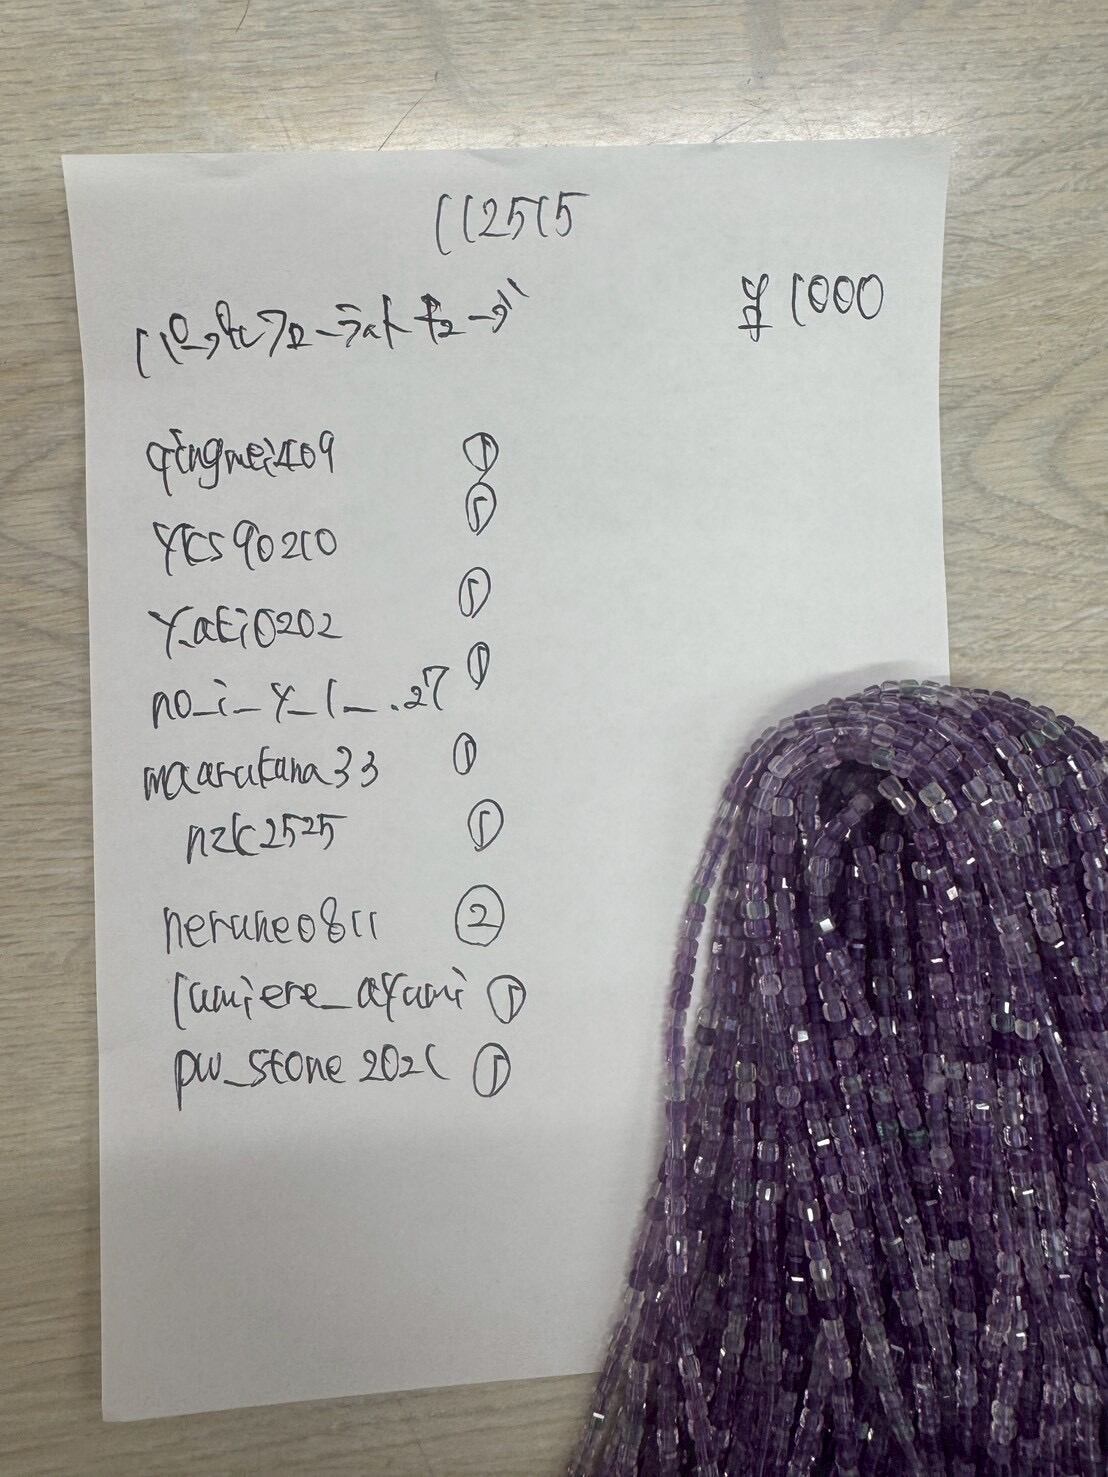 112515
パープルフローライト キューブ
¥1000
qingmei409 ①
YKS90210 ①
y.aki0202 ①
no_i_y_l__.27 ①
maarukana33 ①
nzk2525 ①
neruneo811 ②
lumiere_ayumi ①
pw_stone2021 ①